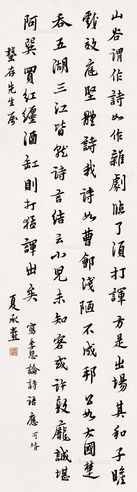 山谷謂作詩如作雜劇臨了須打諢方是出場其和子瞻
韻效庭堅體詩我詩如曹鄶淺陋不成邦公如大國楚
吞五湖三江皆就詩言結云小兒未知客或許敦龐誠堪
阿巽買紅纏酒缸則打猛諢出矣
寫季思論詩語應可靖
存先生
夏承燾